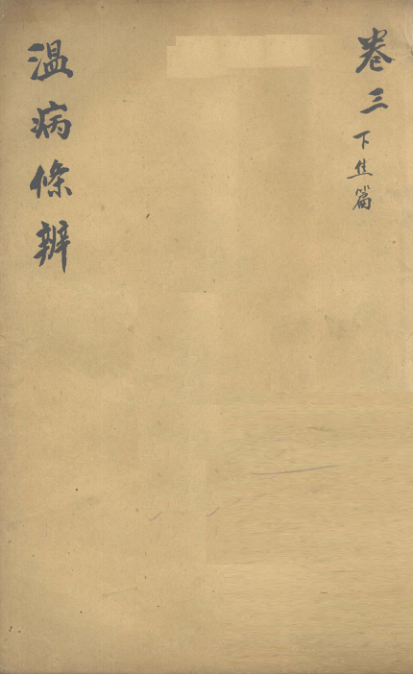 卷三下焦篇
温病條辨